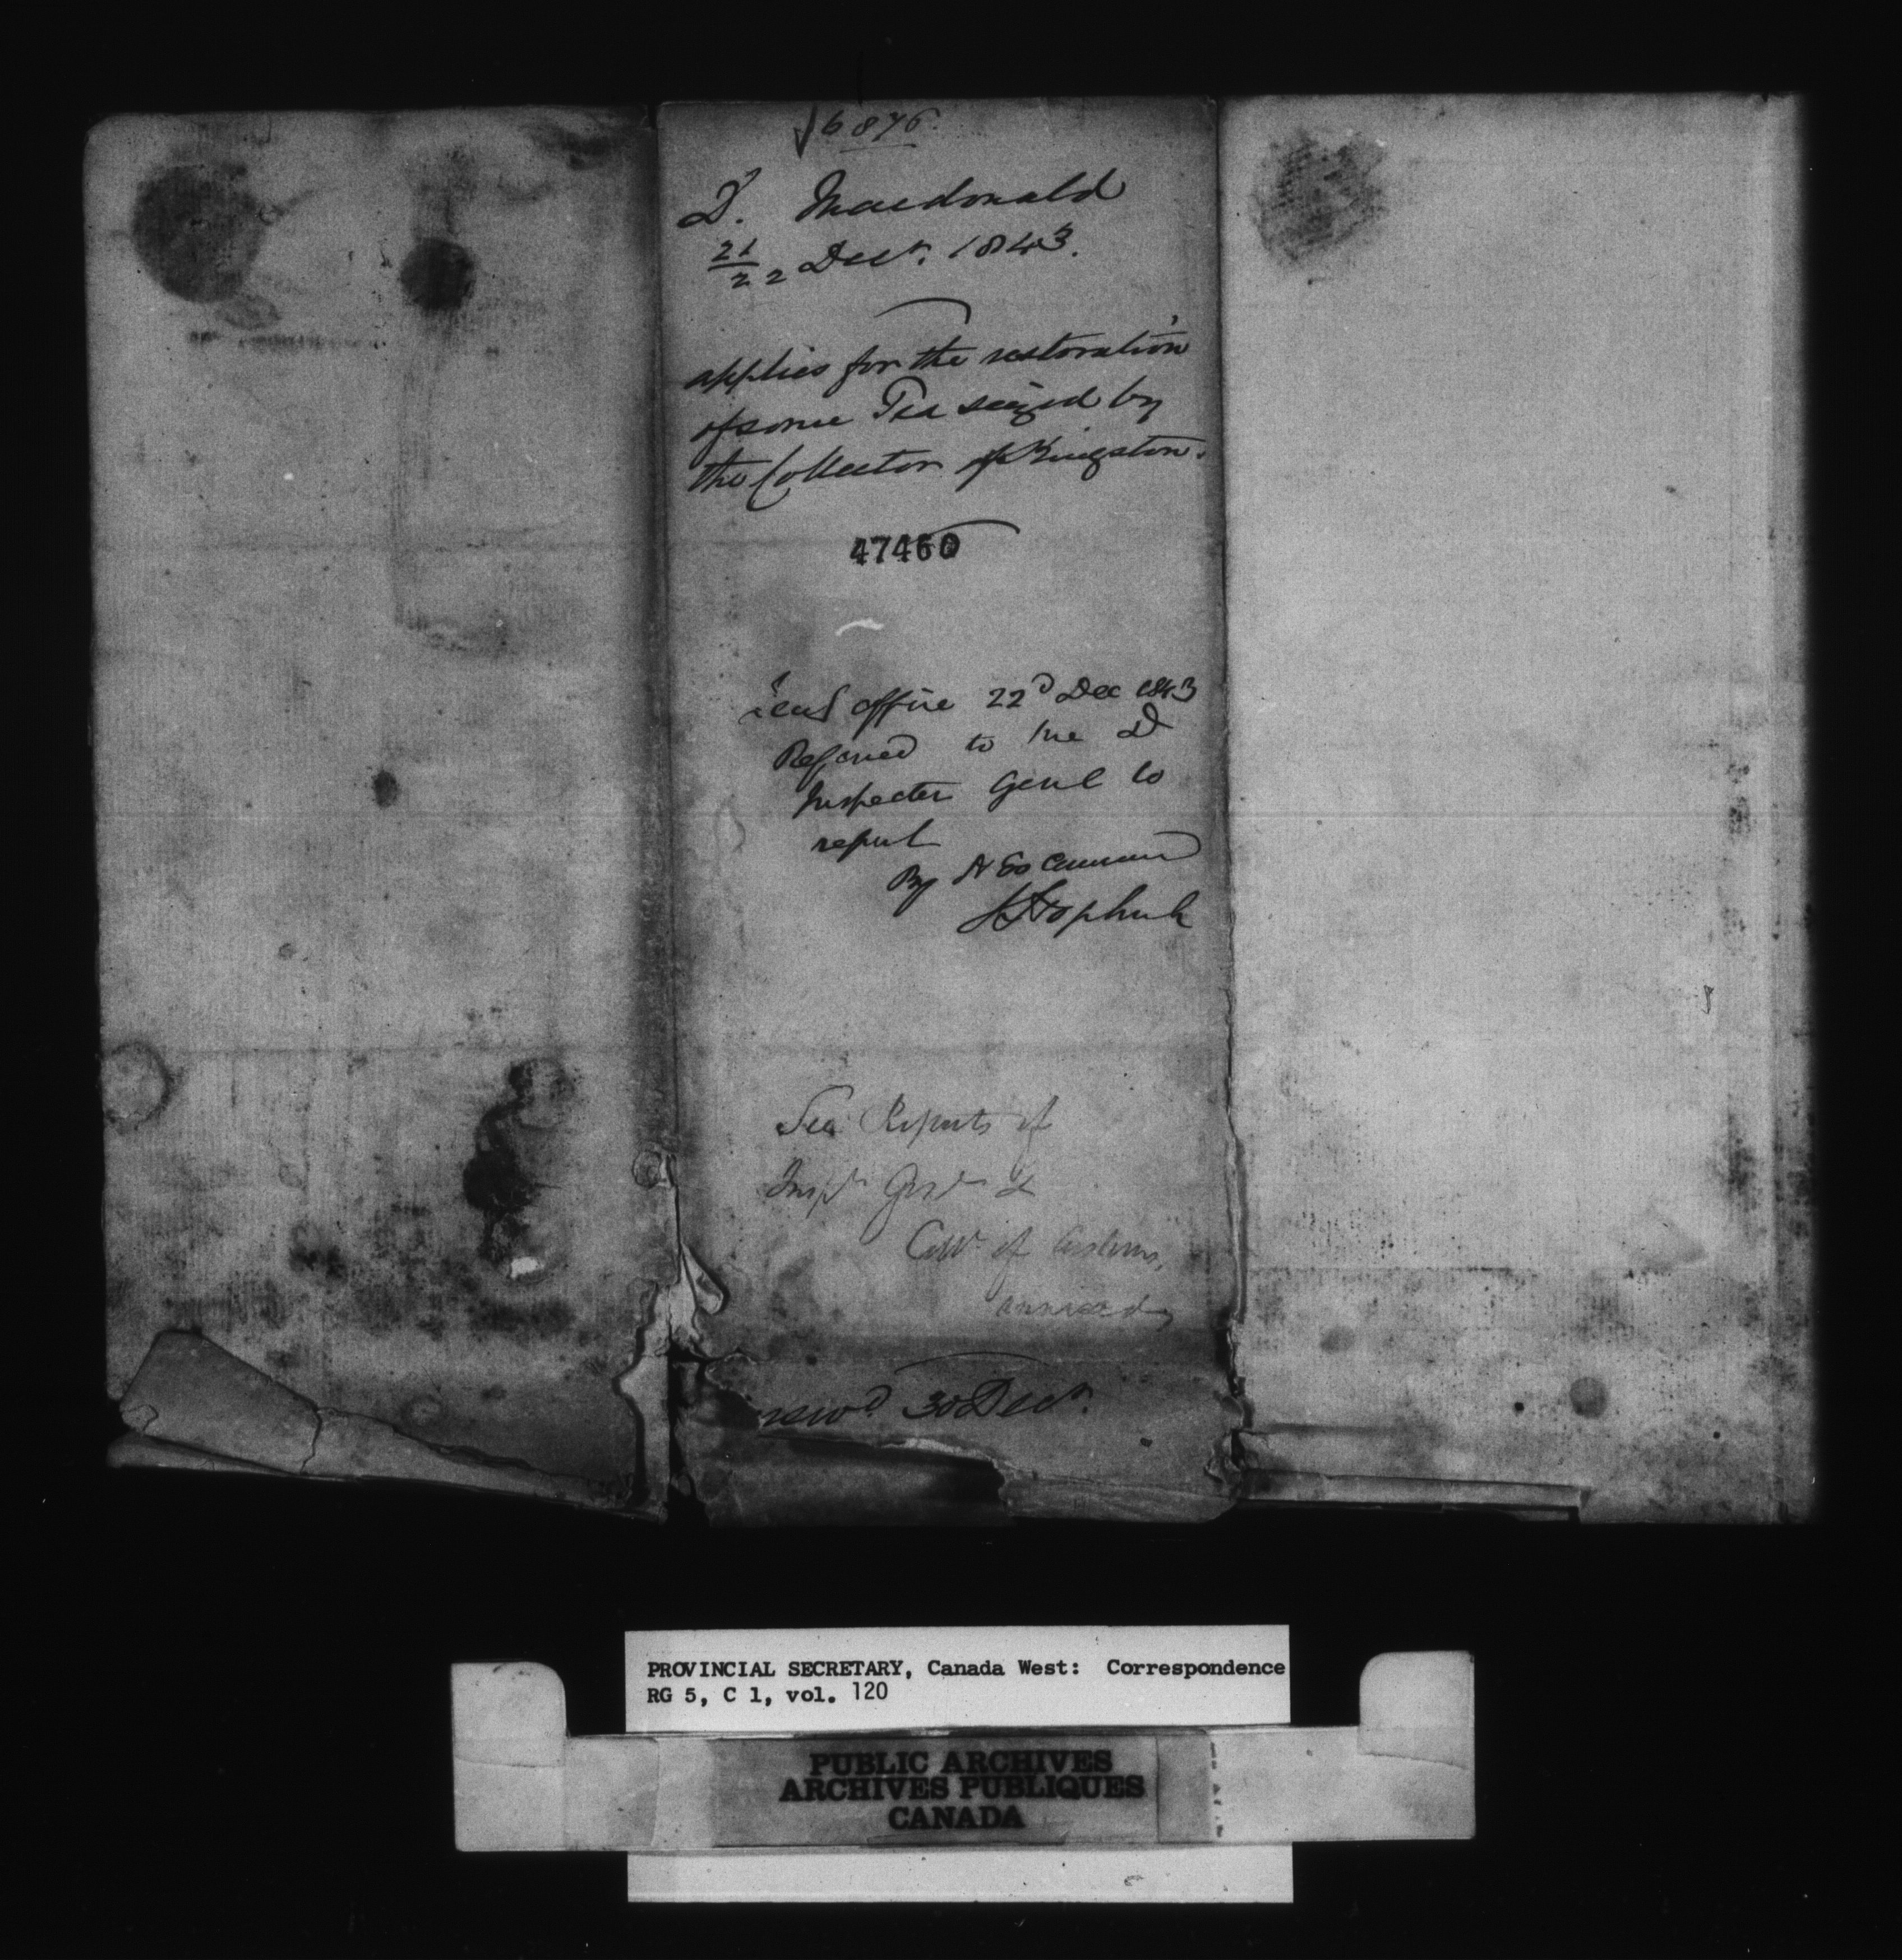 6876.
D. Macdonald
21/22 Decr. 1843.
applies for the restoration
of some Tea seized by
the Collector of Kingston.
47460
Office 22d Dec 1843
Referred to the D
Inspector Genl to
report
By H Es Command
See Reports of
Inspr Genl &
Collr. of Customs,
annexed
30 Decr.
PROVINCIAL SECRETARY, Canada West: Correspondence
RG 5, C 1, vol. 120
PUBLIC ARCHIVES
ARCHIVES PUBLIQUES
CANADA